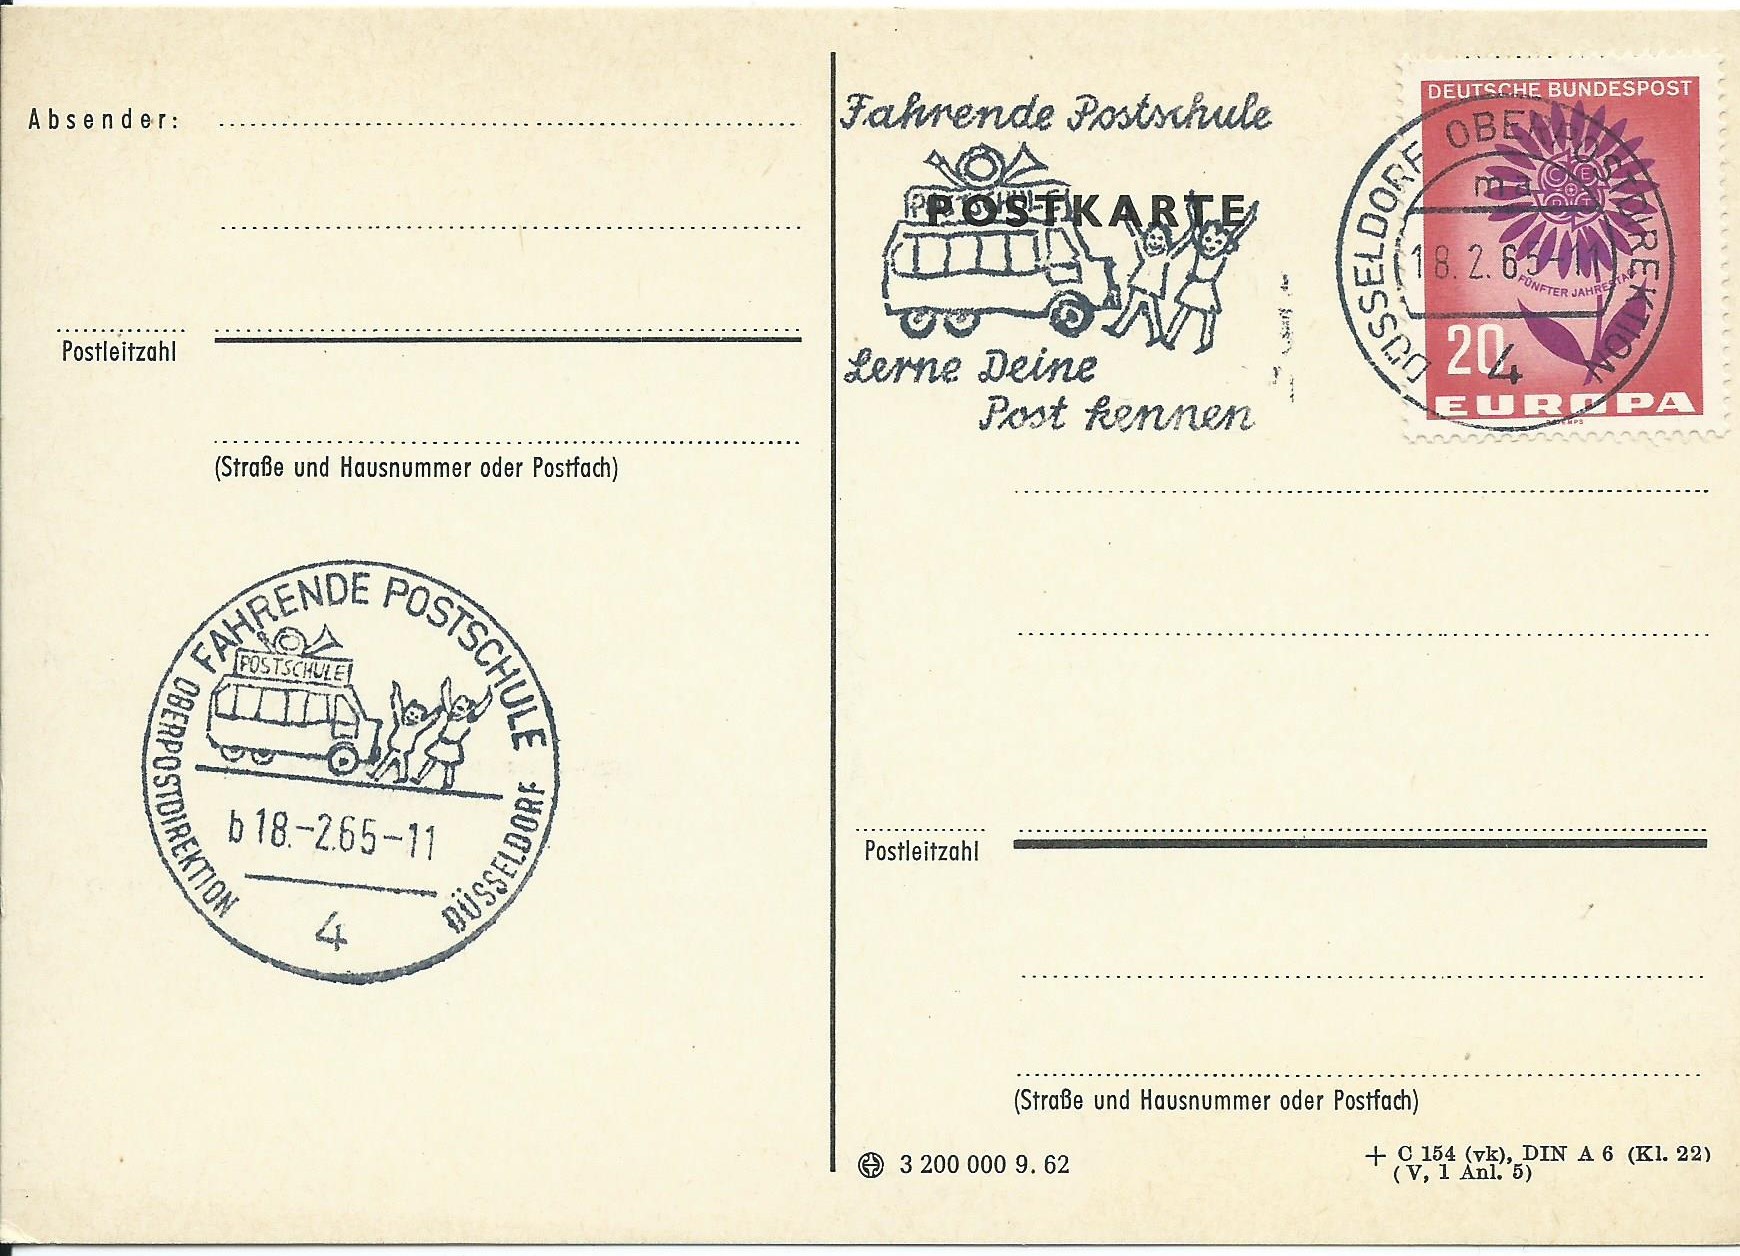 Absender:
Postleitzahl
(Straße und Hausnummer oder Postfach)
FAHRENDE POSTSCHULE
POSTSCHULE
OBERPOSTDIREKTION
DÜSSELDORF
b 18.-2.65-11
4
Fahrende Postschule
POSTSCHULE
POSTKARTE
Lerne Deine
Post kennen
DEUTSCHE BUNDESPOST
DÜSSELDORF OBERPOSTDIREKTION
ma
CEPT
18.2.65-11
FÜNFTER JAHRESTAG
20
4
EUROPA
Postleitzahl
(Straße und Hausnummer oder Postfach)
3 200 000 9. 62
+ C 154 (vk), DIN A 6 (Kl. 22)
(V, 1 Anl. 5)